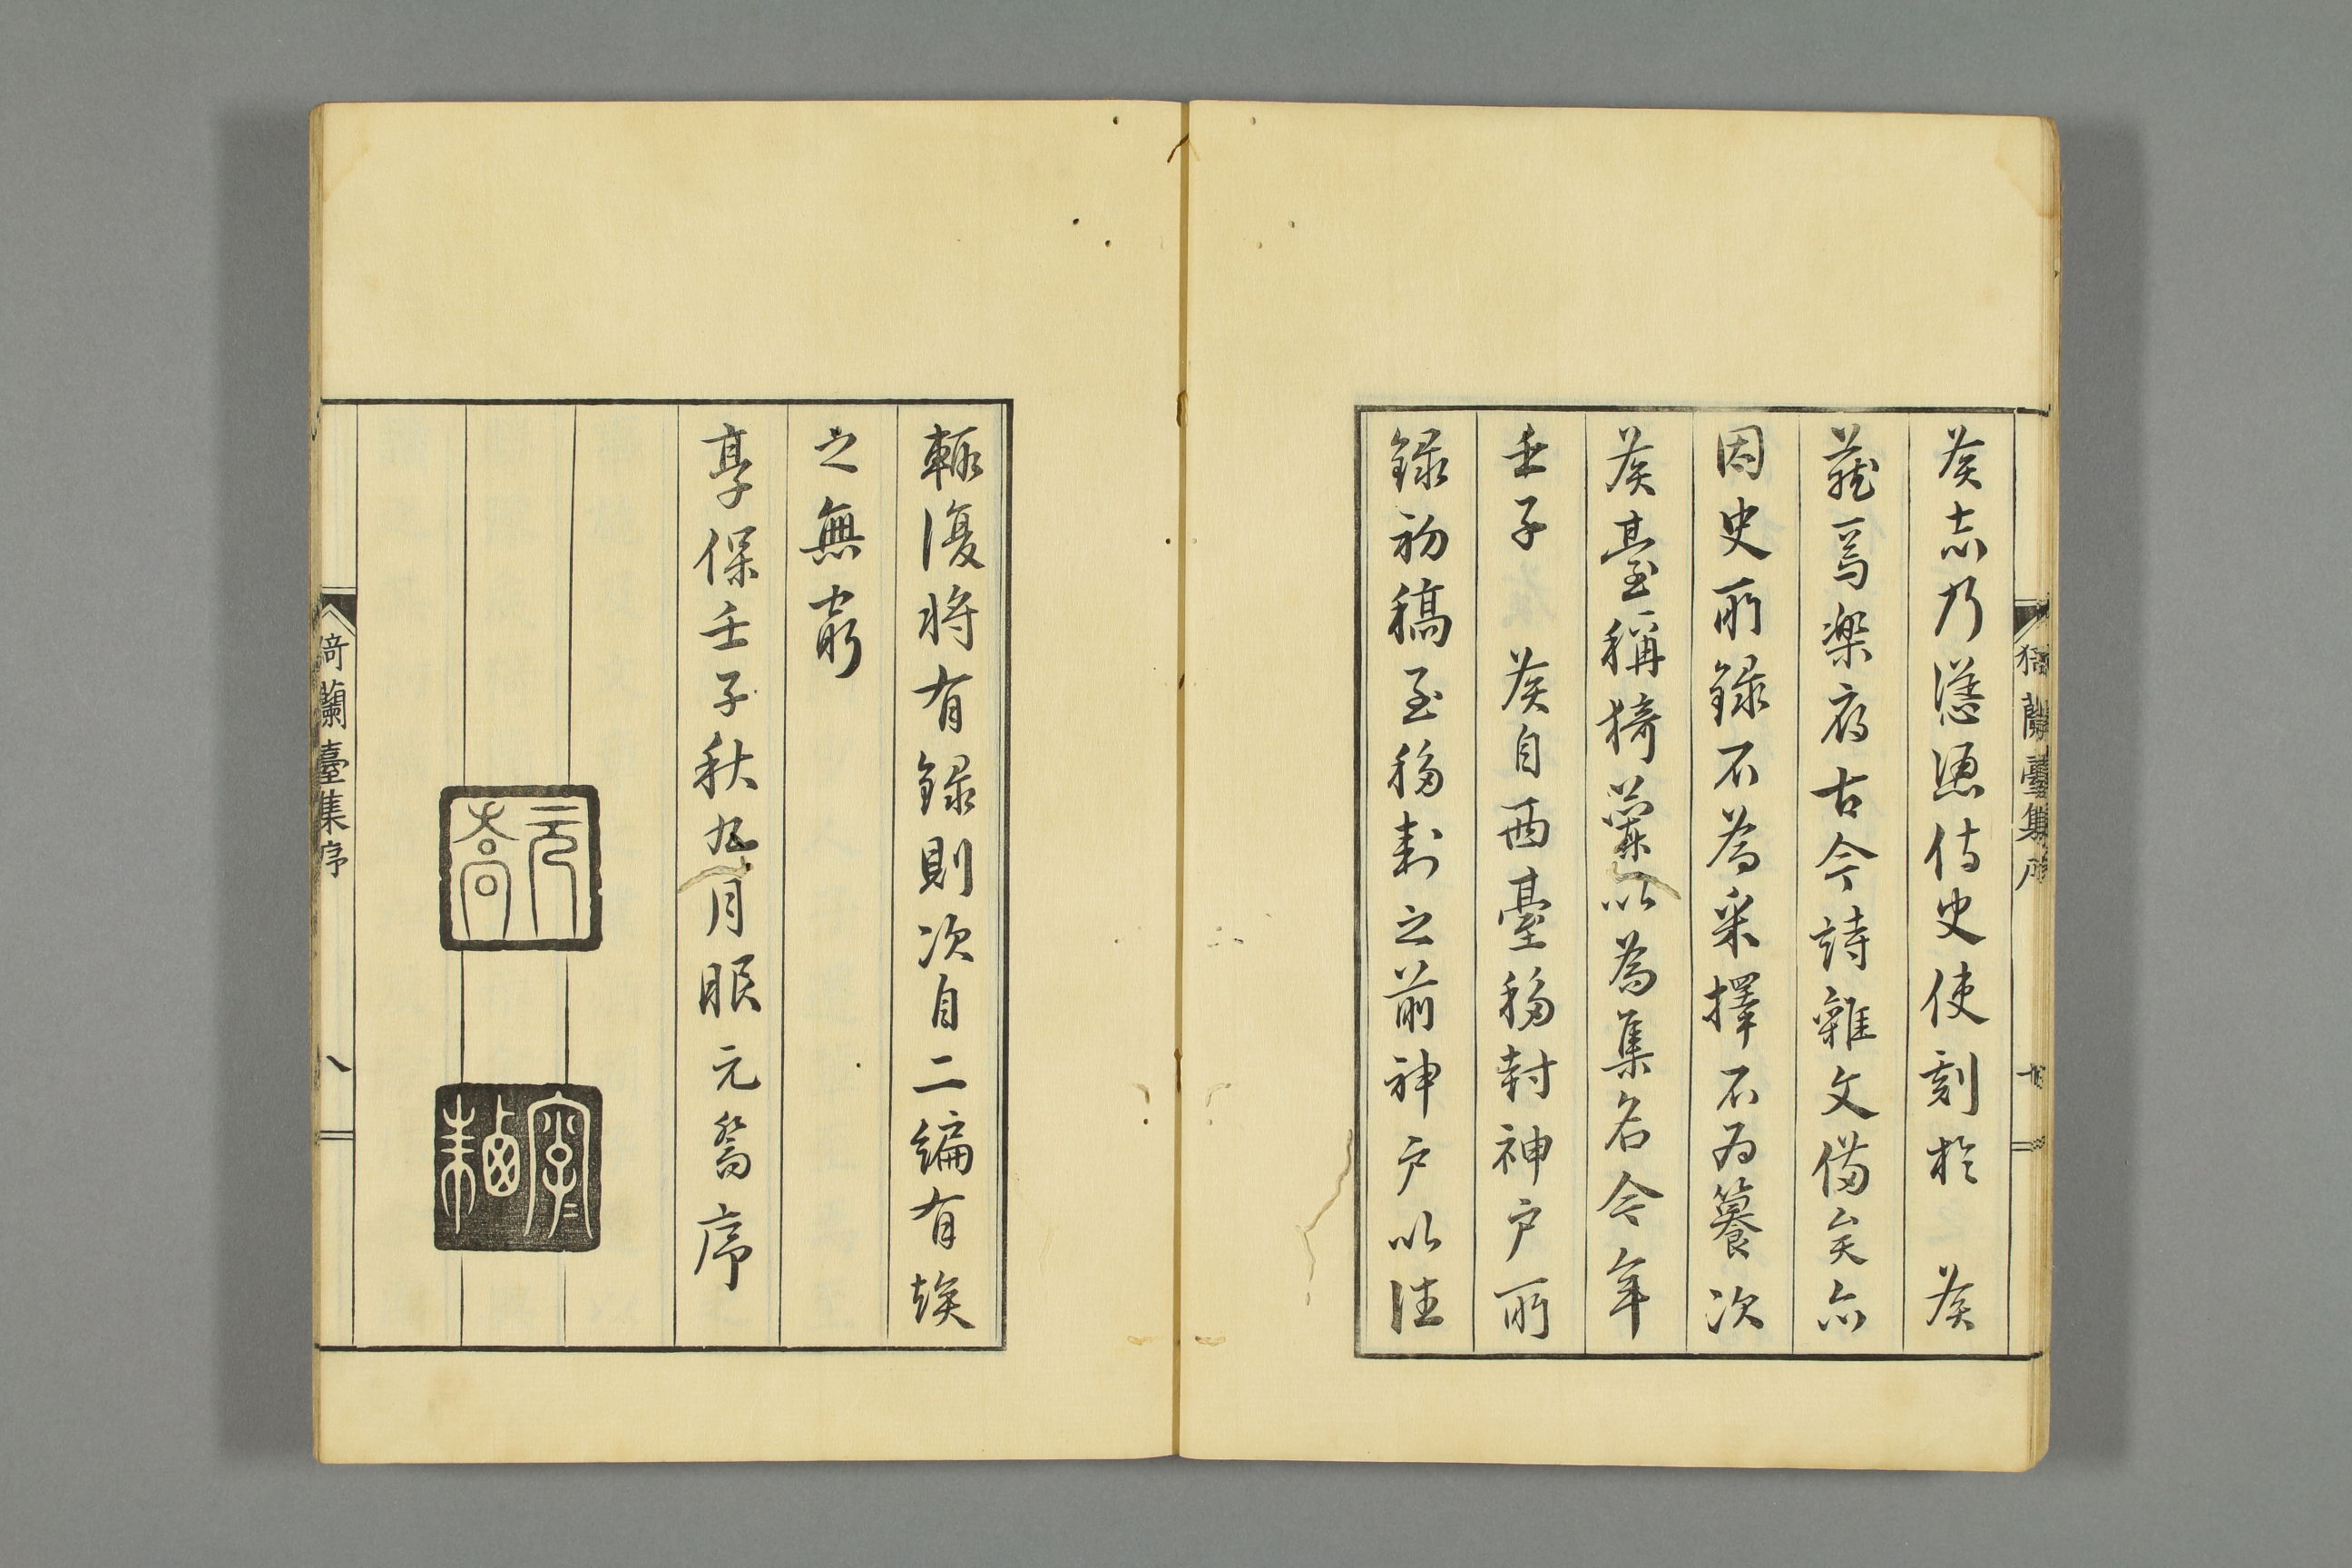 猗蘭臺集序
矦志乃慫慂侍史使刻於 矦
蔵焉樂府古今詩雜文備矣亦
因史所錄不為采擇不為纂次
矦臺稱猗蘭以為集名今年
壬子 矦自西臺移封神戶所
錄初稿至移封之前神戶以往
輙復將有錄則次自二編有竢
之無窮
享保壬子秋九月服元喬序
元喬
猗蘭臺集序 八